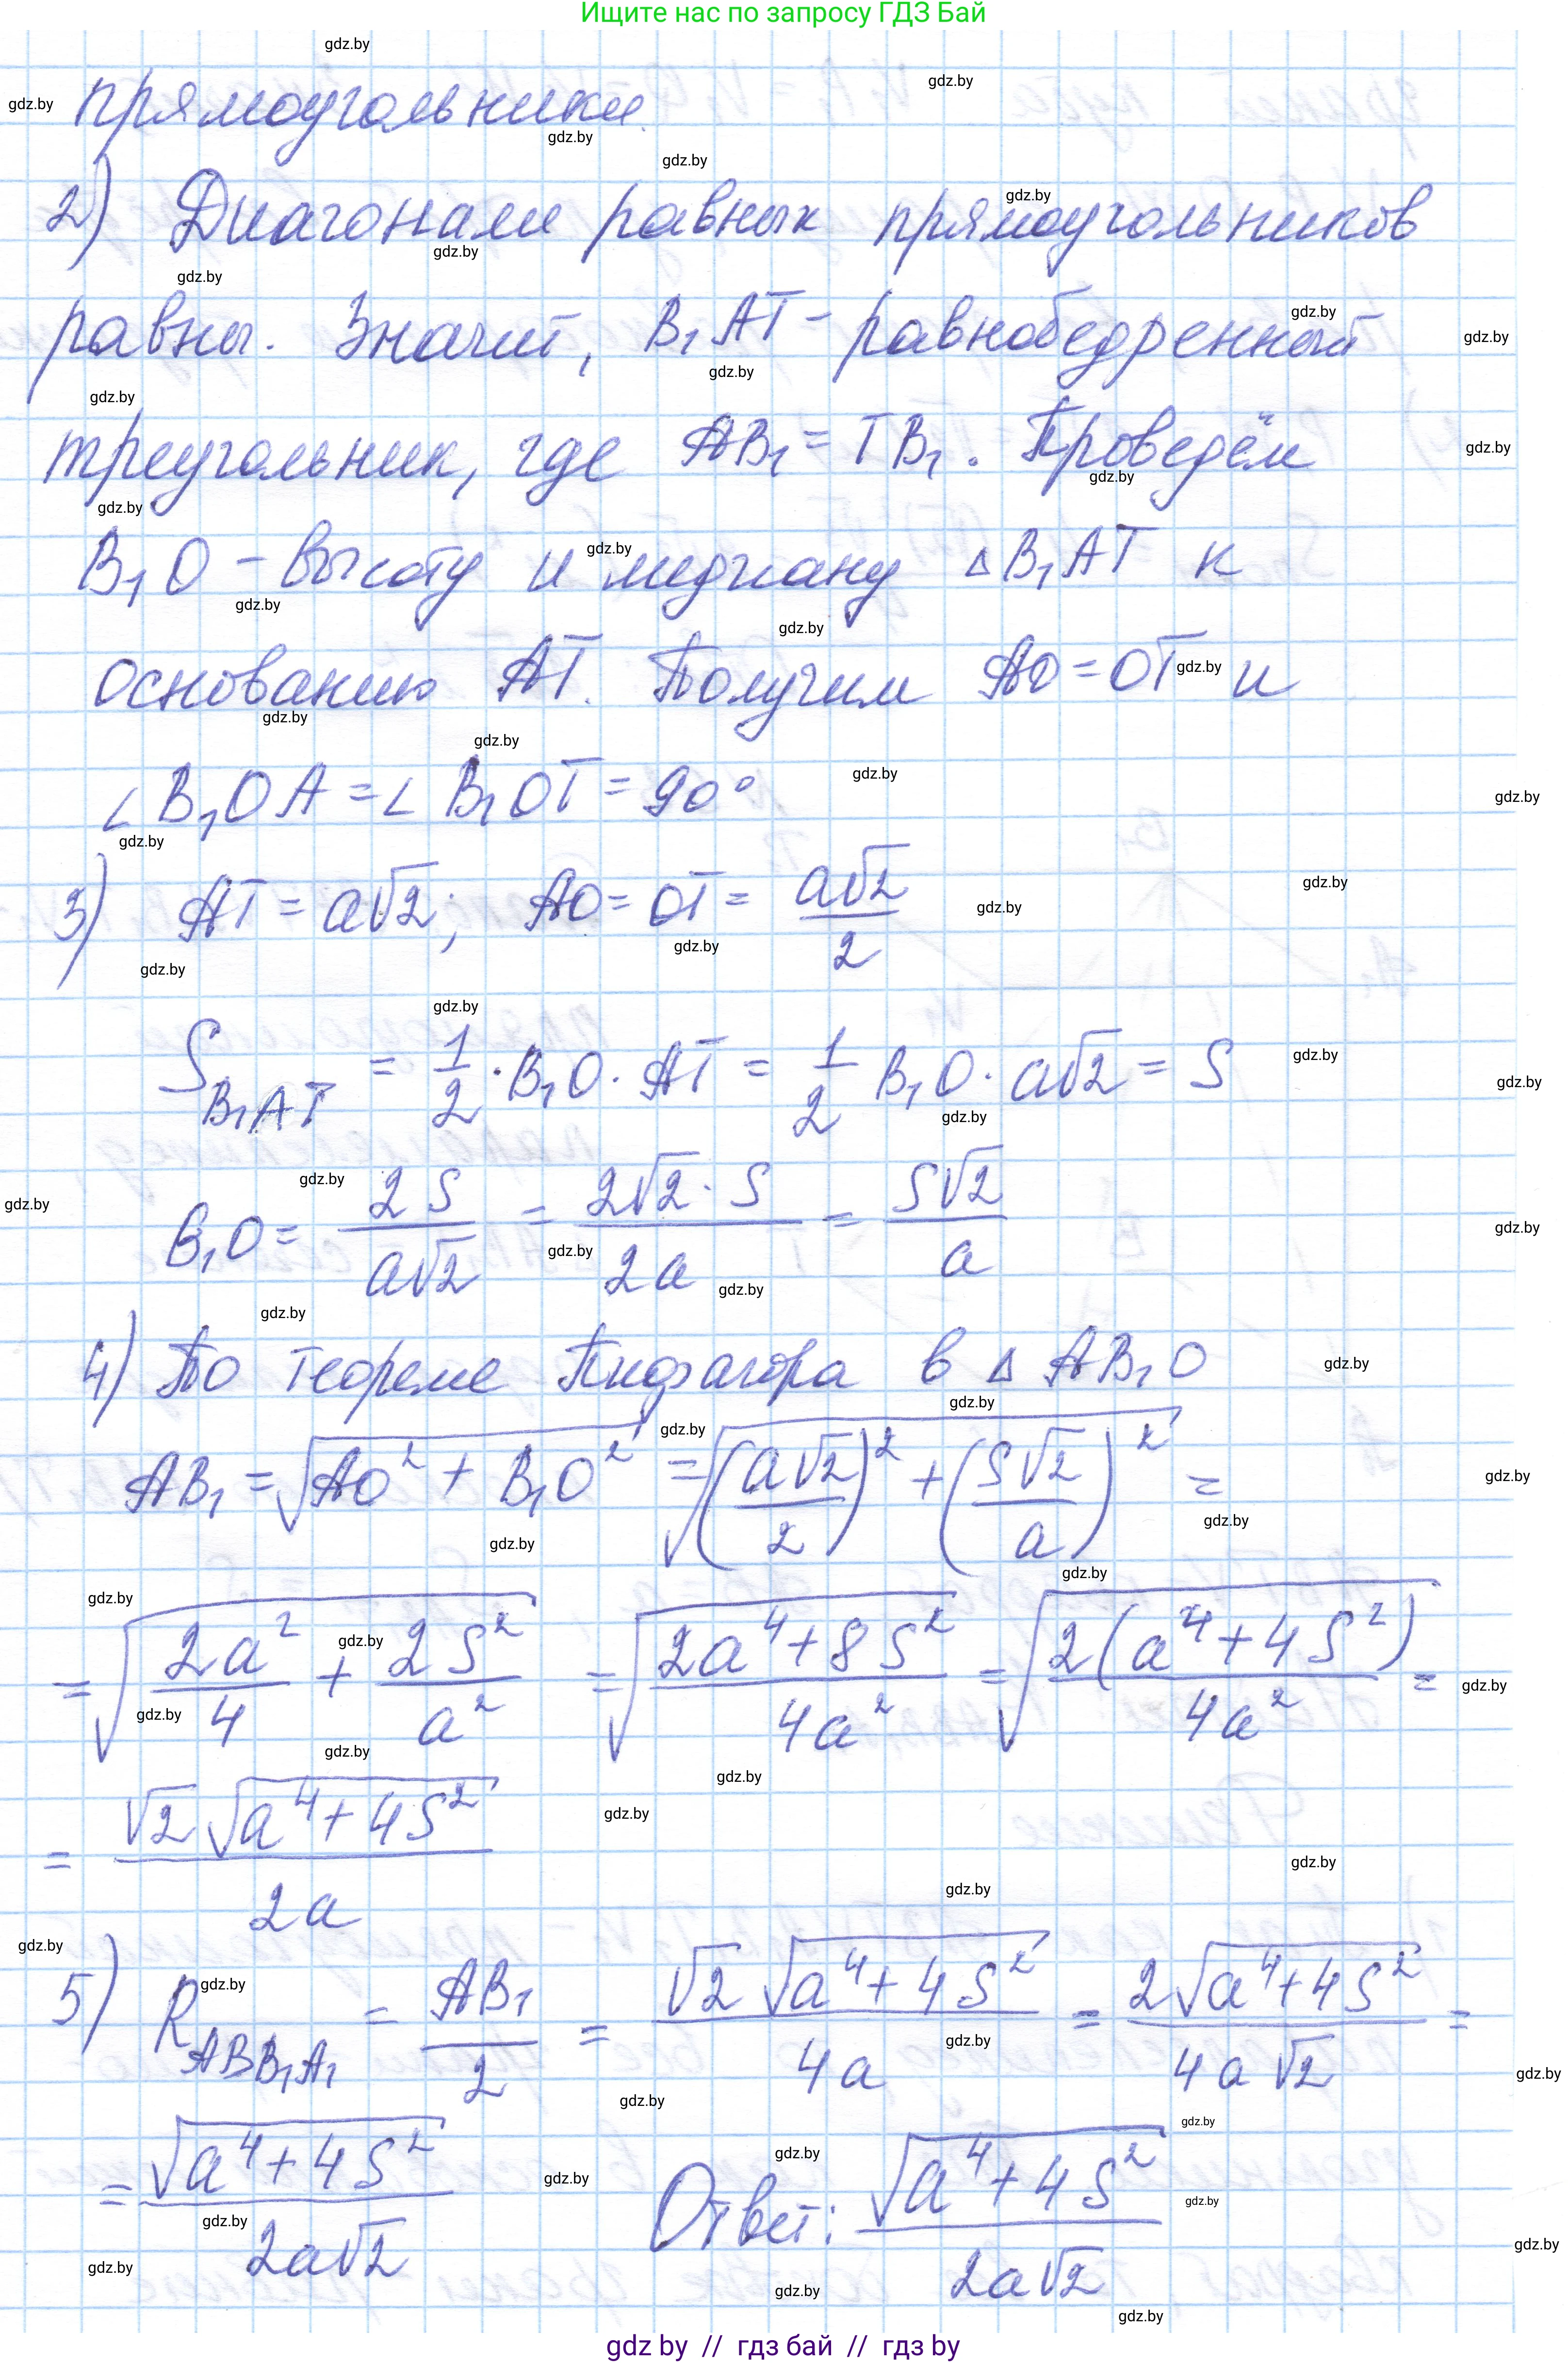 Ищите нас по запросу ГДЗ Бай
прямоугольники.
2) Диагонали равных прямоугольников
равны. Значит, B₁AT - равнобедренный
треугольник, где AB₁ = TB₁. Проведём
B₁O - высоту и медиану ΔB₁AT к
основанию AT. Получим AO = OT и
∠B₁OA = ∠B₁OT = 90°
3) AT = a√2; AO = OT = a√2/2
S_B₁AT = 1/2 · B₁O · AT = 1/2 B₁O · a√2 = S
B₁O = 2S/(a√2) = 2√2 · S/(2a) = S√2/a
4) По теореме Пифагора в Δ AB₁O
AB₁ = √(AO² + B₁O²) = √((a√2/2)² + (S√2/a)²) =
= √(2a²/4 + 2S²/a²) = √((2a⁴ + 8S²)/(4a²)) = √(2(a⁴ + 4S²)/(4a²)) =
= √2 √(a⁴ + 4S²)/(2a)
5) R_ABB₁A₁ = AB₁/2 = √2 √(a⁴ + 4S²)/(4a) = 2√(a⁴ + 4S²)/(4a√2) =
= √(a⁴ + 4S²)/(2a√2) Ответ: √(a⁴ + 4S²)/(2a√2)
gdz by // гдз бай // gdz by